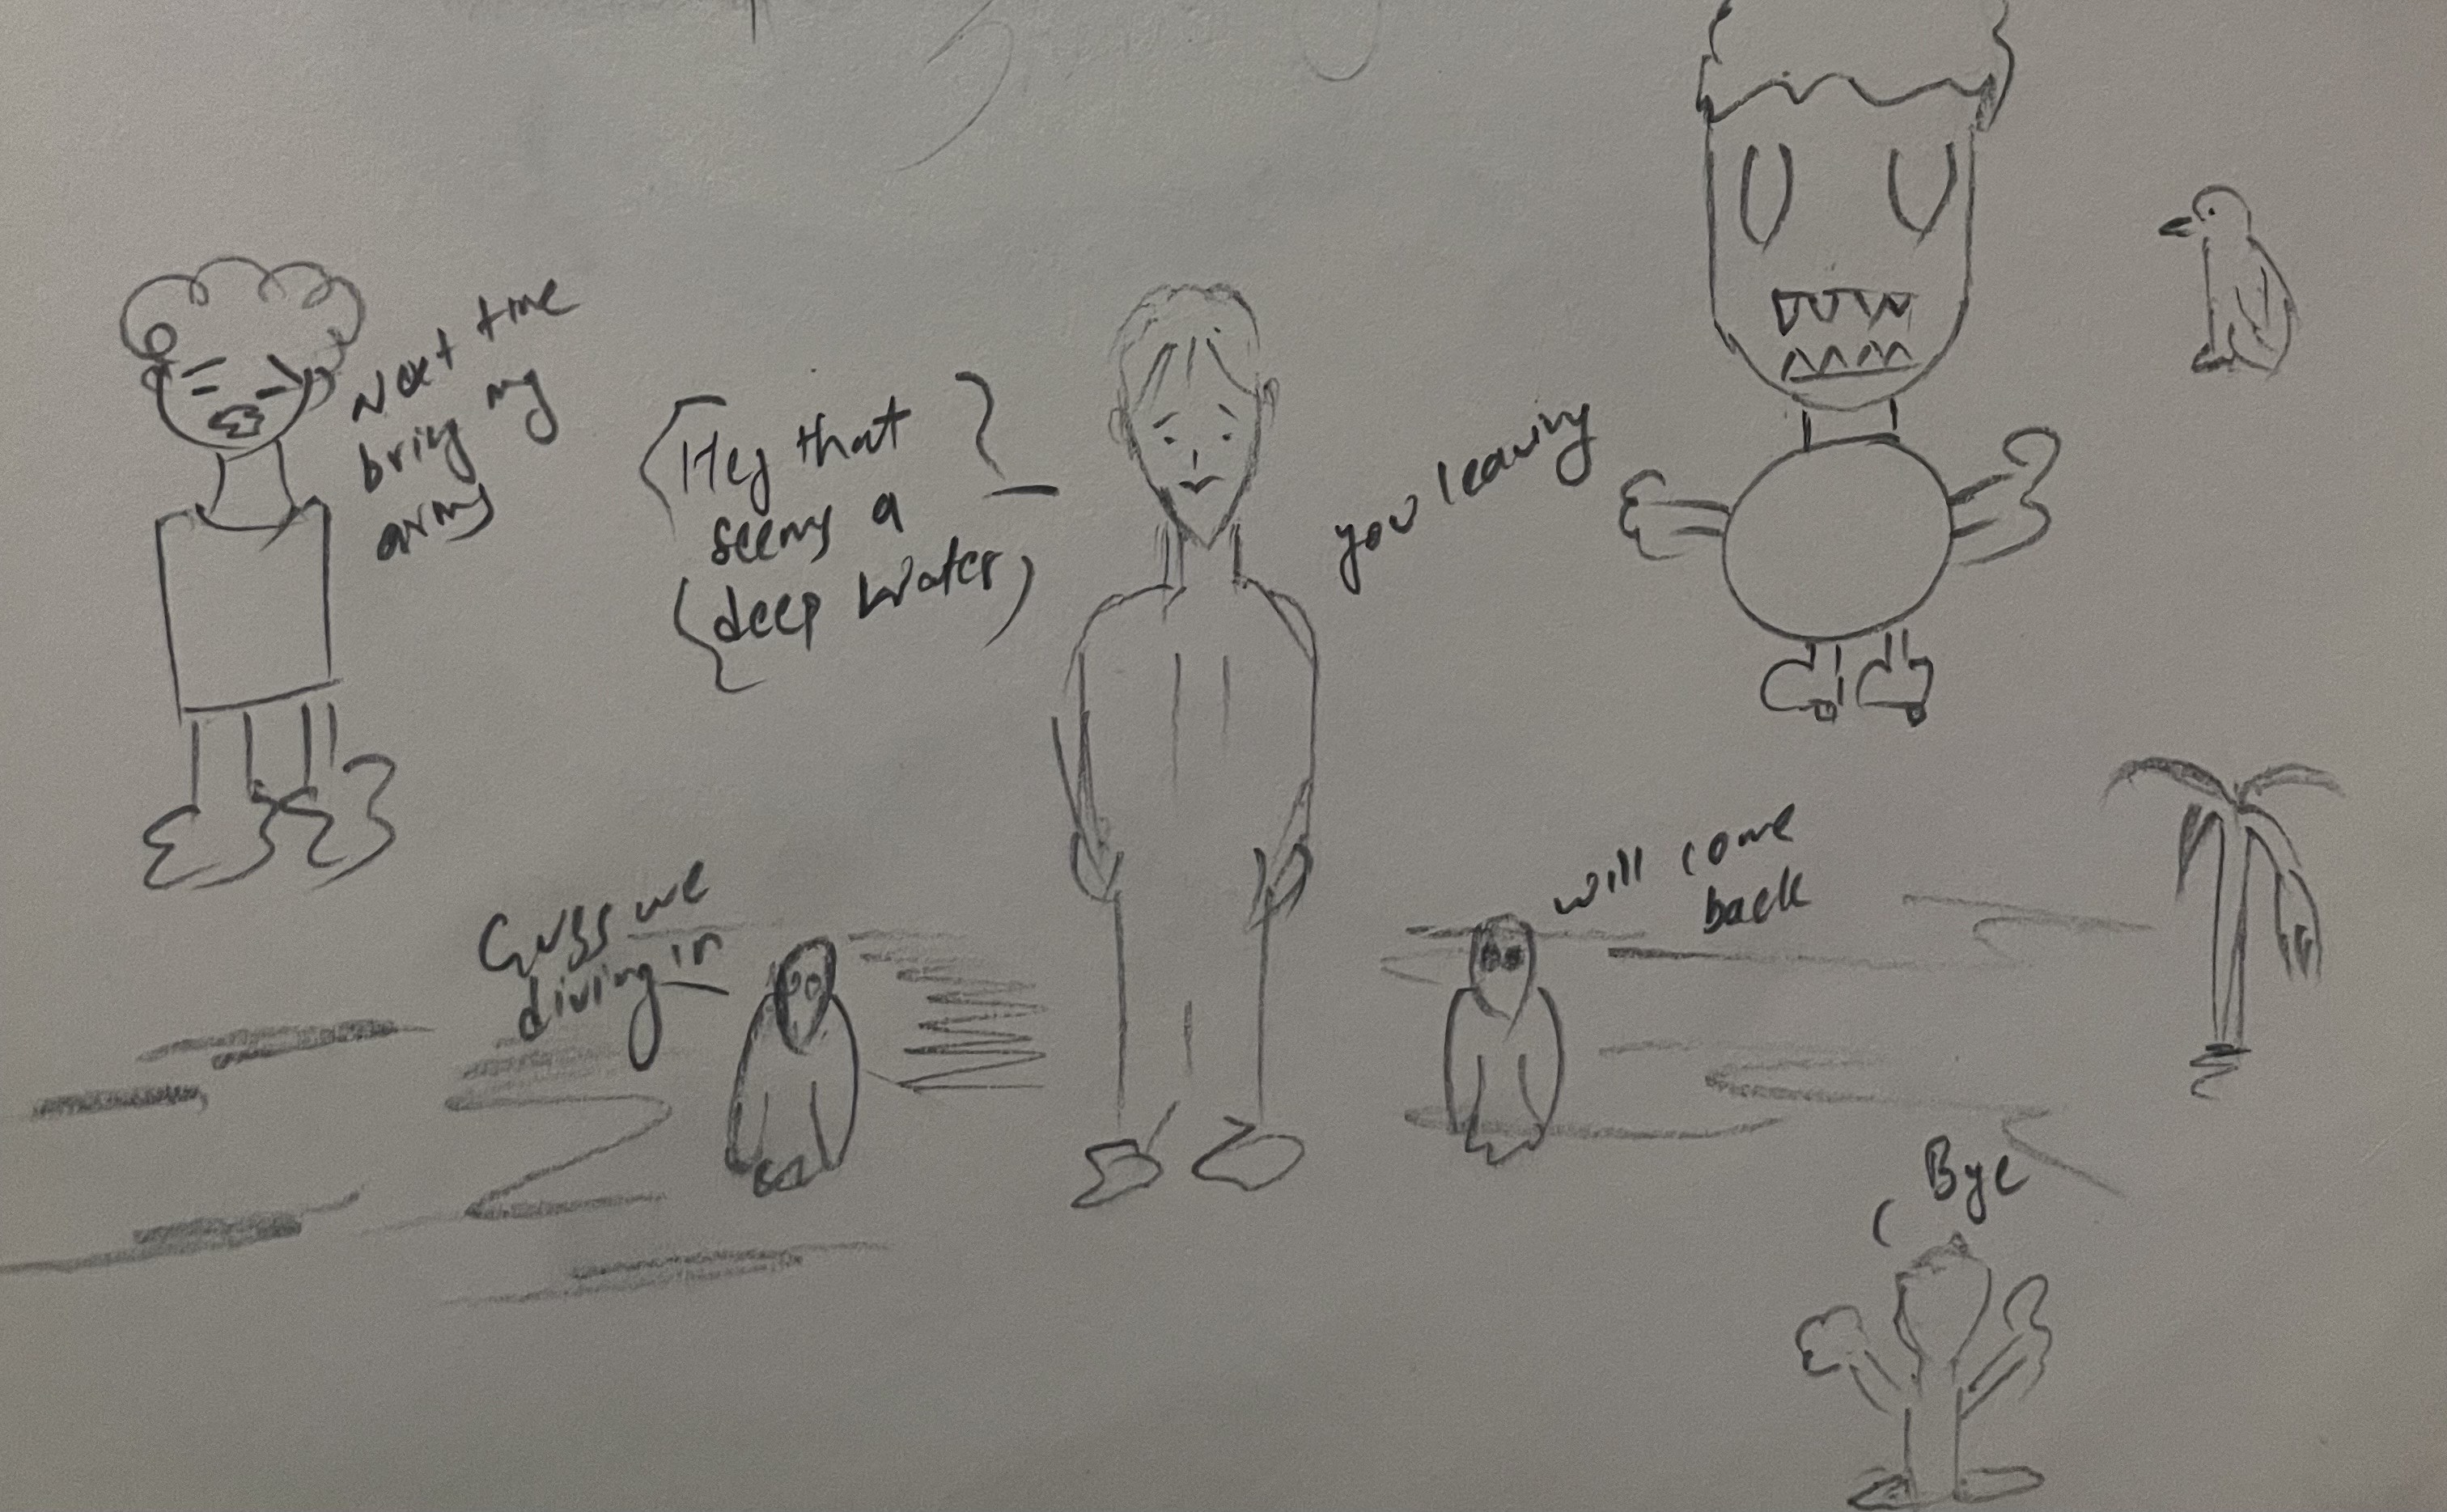 Next time
bring my
arms
Hey that
seems a
deep water
you leaving
Guss we
diving in
will come
back
Bye